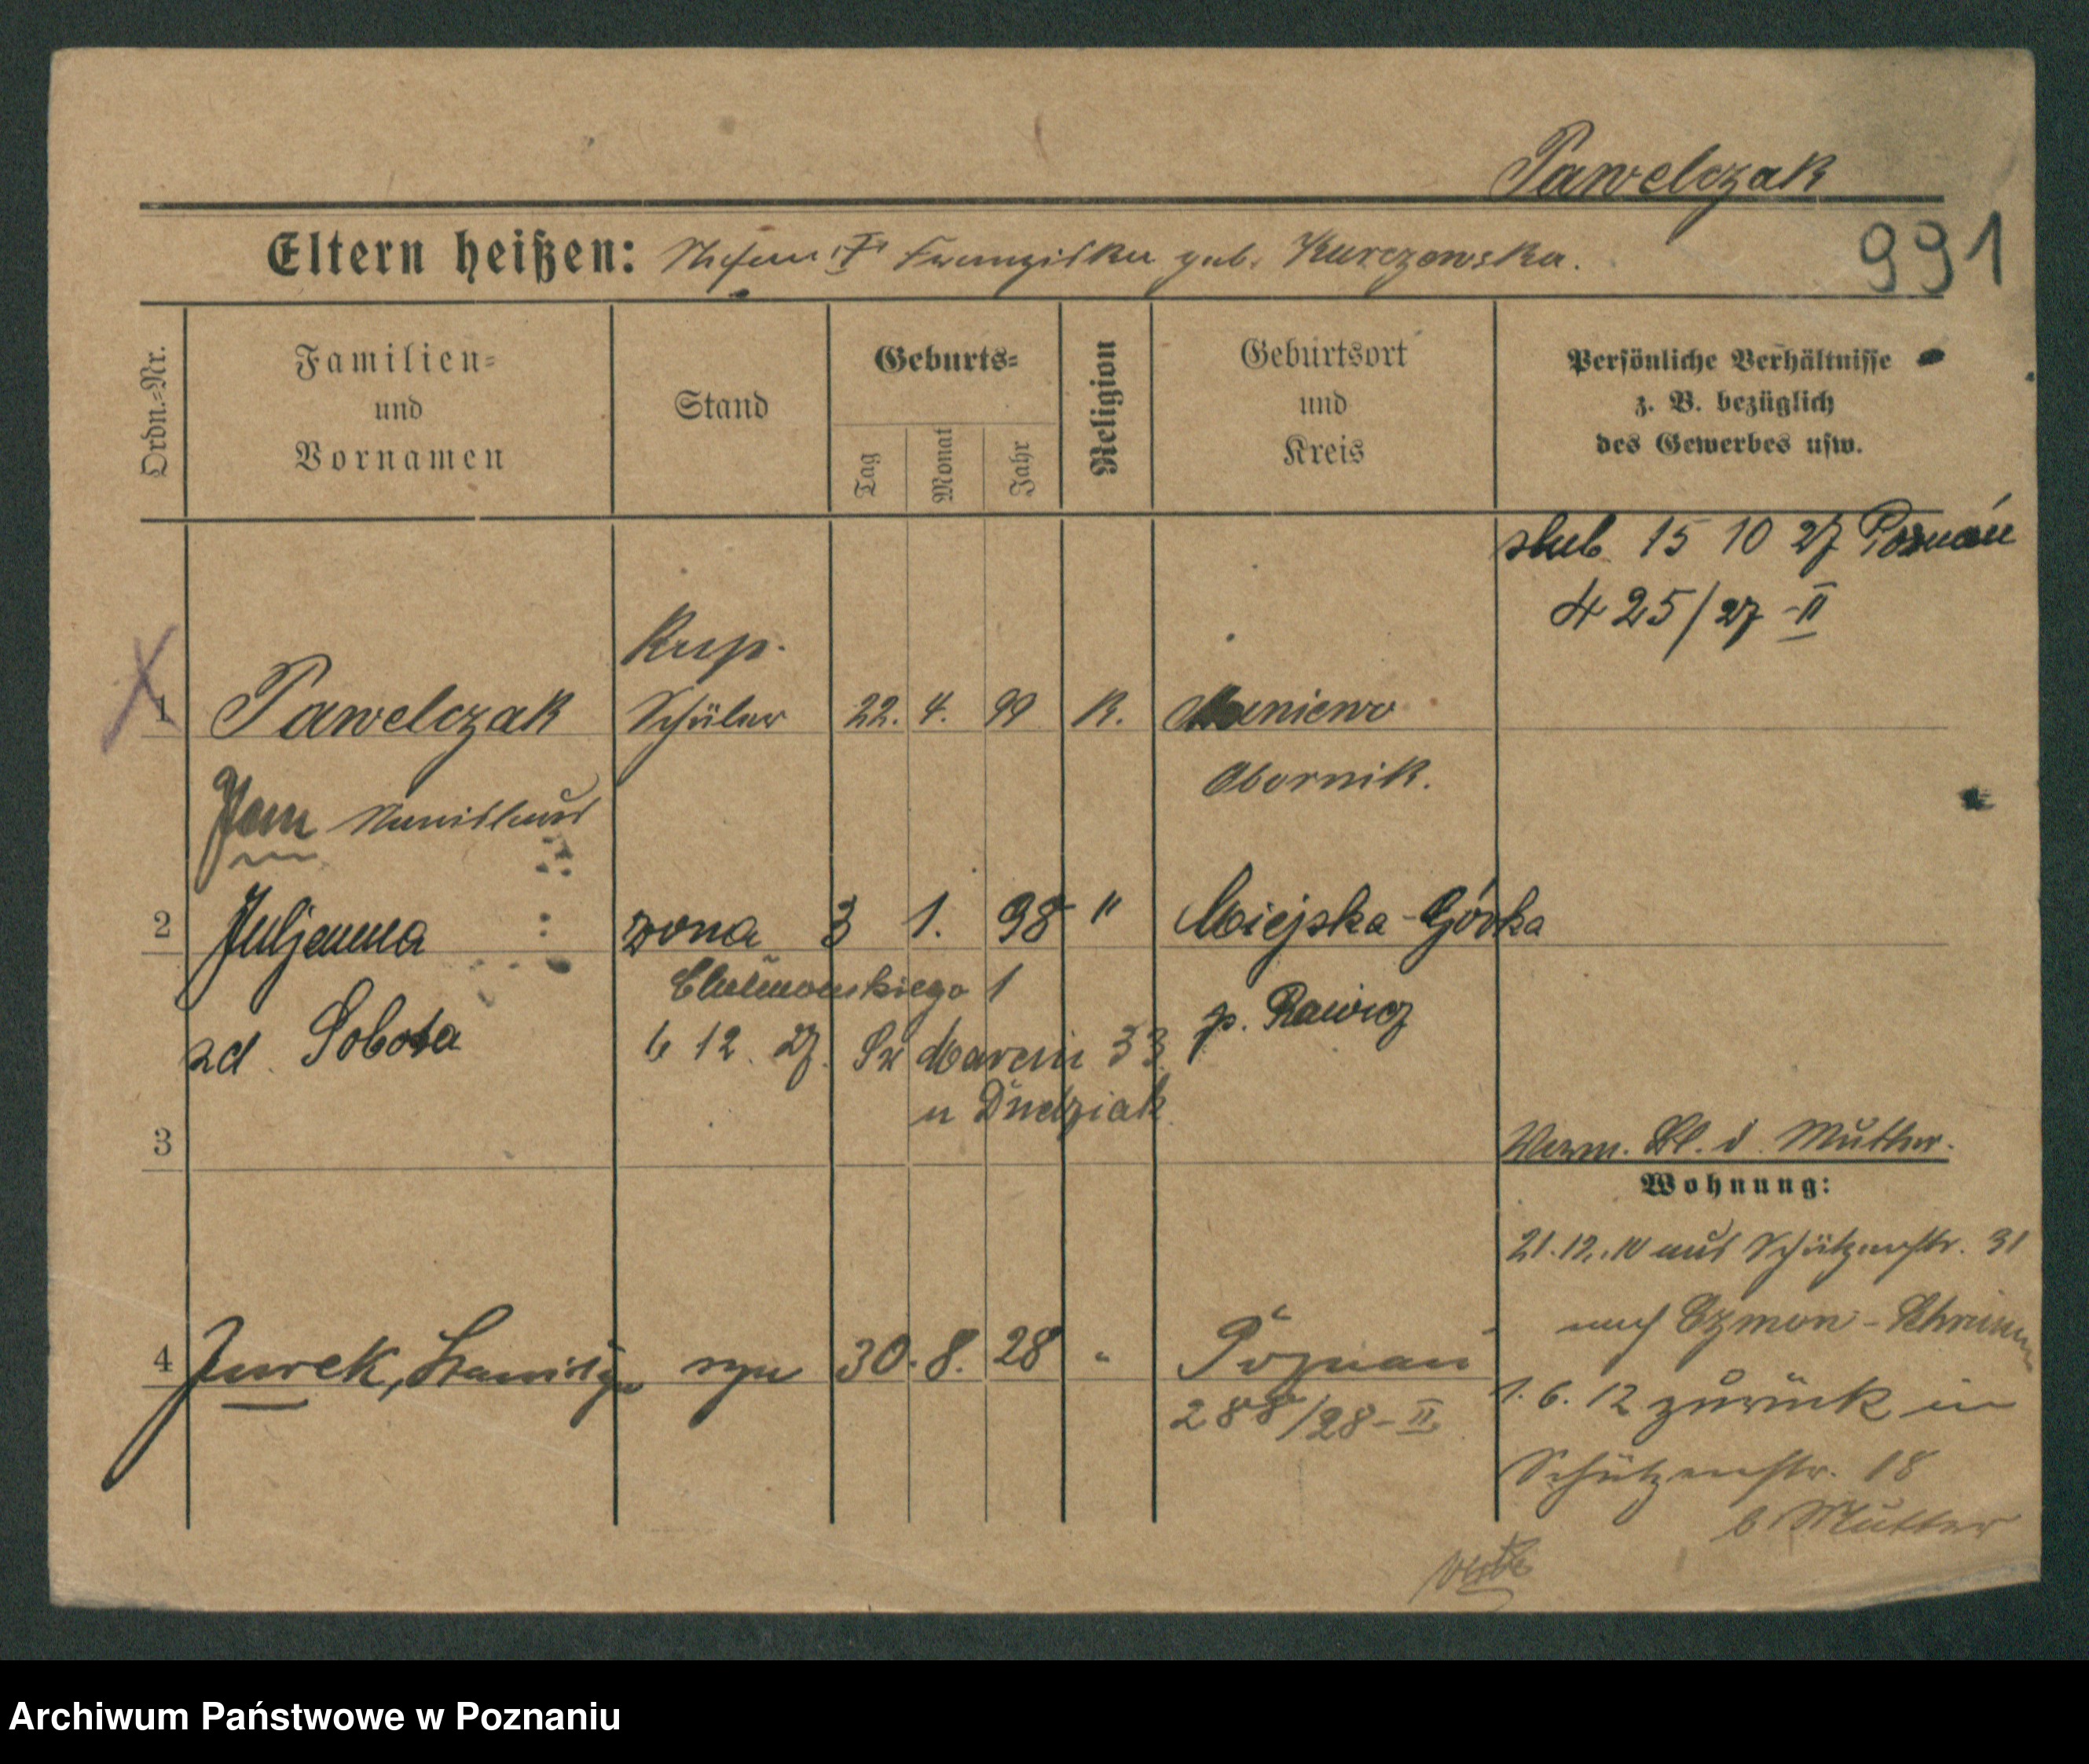 Pawelczak
Eltern heißen: Stefan † Franziska geb. Kurczewska.
991
Ordn.-Nr.
Familien-
und
Vornamen
Stand
Geburts-
Tag
Monat
Jahr
Religion
Geburtsort
und
Kreis
Persönliche Verhältnisse
z. B. bezüglich
des Gewerbes usw.
slub 15 10 27 Poznań
425/27 - II
Kup.
1 Pawelczak Schüler 22. 4. 99 K.
Obornik.
Jan Stanislaus
2 Juljanna zona 3 1. 98 " Miejska-Górka
1
zd. Sobota
p. Rawicz
6 12. 27. Sw Marcin 33
u Dudziak
3
Verm. Bl. d. Mutter.
Wohnung:
21.12.10 aus Schützenstr. 31
nach Czmon - Schrimm
4 Jurek, syn 30. 8. 28 " Poznań
288/28 - II
1. 6. 12 zurück in
Schützenstr. 18
b Mutter
Archiwum Państwowe w Poznaniu